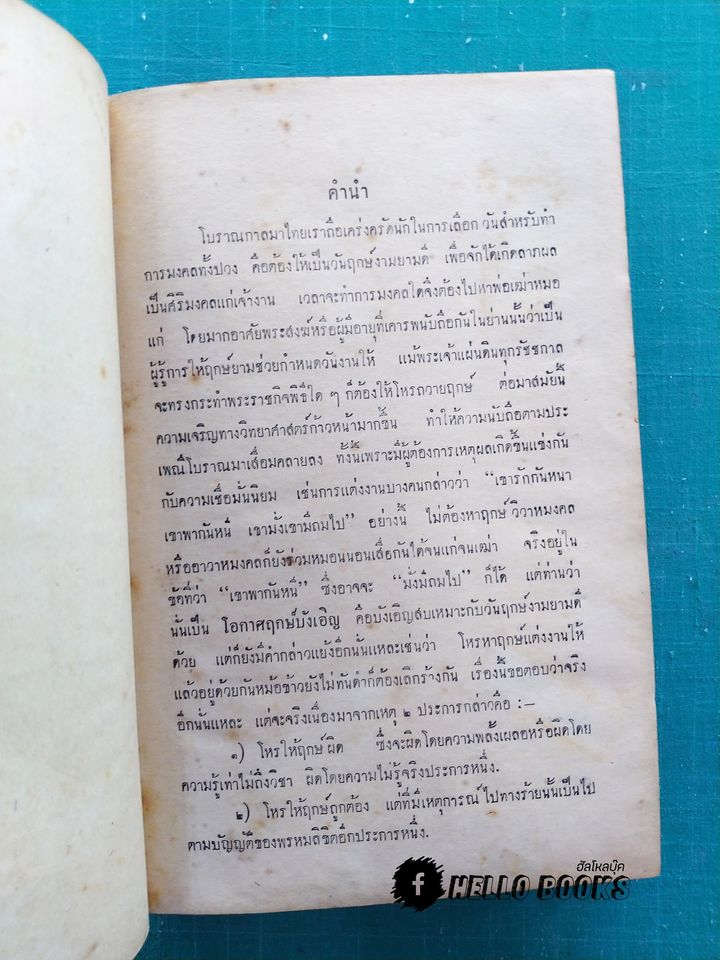 คำนำ
โบราณกาลมาไทยเราถือเคร่งครัดนักในการเลือกวันสำหรับทำ
การมงคลทั้งปวง คือต้องให้เป็นวันฤกษ์งามยามดี เพื่อจักได้เกิดลาภผล
เป็นศิริมงคลแก่เจ้างาน เวลาจะทำการมงคลใดจึงต้องไปหาพ่อเฒ่าหมอ
แก่ โดยมากอาศัยพระสงฆ์หรือผู้มีอายุที่เคารพนับถือกันในย่านนั้นว่าเป็น
ผู้รู้การให้ฤกษ์ยามช่วยกำหนดวันงานให้ แม้พระเจ้าแผ่นดินทุกรัชชกาล
จะทรงกระทำพระราชกิจพิธีใด ๆ ก็ต้องให้โหรถวายฤกษ์ ต่อมาสมัยนี้
ความเจริญทางวิทยาศาสตร์ก้าวหน้ามากขึ้น ทำให้ความนับถือตามประ
เพณีโบราณมาเสื่อมคลายลง ทั้งนี้เพราะมีผู้ต้องการเหตุผลเกิดขึ้นแข่งกัน
กับความเชื่อมั่นนิยม เช่นการแต่งงานบางคนกล่าวว่า “เขารักกันหนา
เขาพากันหนี เขามั่งเขามีถมไป” อย่างนี้ ไม่ต้องหาฤกษ์ วิวาหมงคล
หรืออาวาหมงคลก็ยังร่วมหมอนนอนเสื่อกันได้จนแก่จนเฒ่า จริงอยู่ใน
ข้อที่ว่า “เขาพากันหนี” ซึ่งอาจจะ “มั่งมีถมไป” ก็ได้ แต่ท่านว่า
นั้นเป็น โอกาศฤกษ์บังเอิญ คือบังเอิญสบเหมาะกับวันฤกษ์งามยามดี
ด้วย แต่ก็ยังมีคำกล่าวแย้งอีกนั้นแหละเช่นว่า โหรหาฤกษ์แต่งงานให้
แล้วอยู่ด้วยกันหม้อข้าวยังไม่ทันดำก็ต้องเลิกร้างกัน เรื่องนี้ขอตอบว่าจริง
อีกนั่นแหละ แต่จะจริงเนื่องมาจากเหตุ ๒ ประการกล่าวคือ :–
๑) โหรให้ฤกษ์ผิด ซึ่งจะผิดโดยความพลั้งเผลอหรือผิดโดย
ความรู้เท่าไม่ถึงวิชา ผิดโดยความไม่รู้จริงประการหนึ่ง.
๒) โหรให้ฤกษ์ถูกต้อง แต่ที่มีเหตุการณ์ไปทางร้ายนั้นเป็นไป
ตามบัญญัติของพรหมลิขิตอีกประการหนึ่ง.
ฮัลโหลบุ๊ค
f HELLO BOOKS